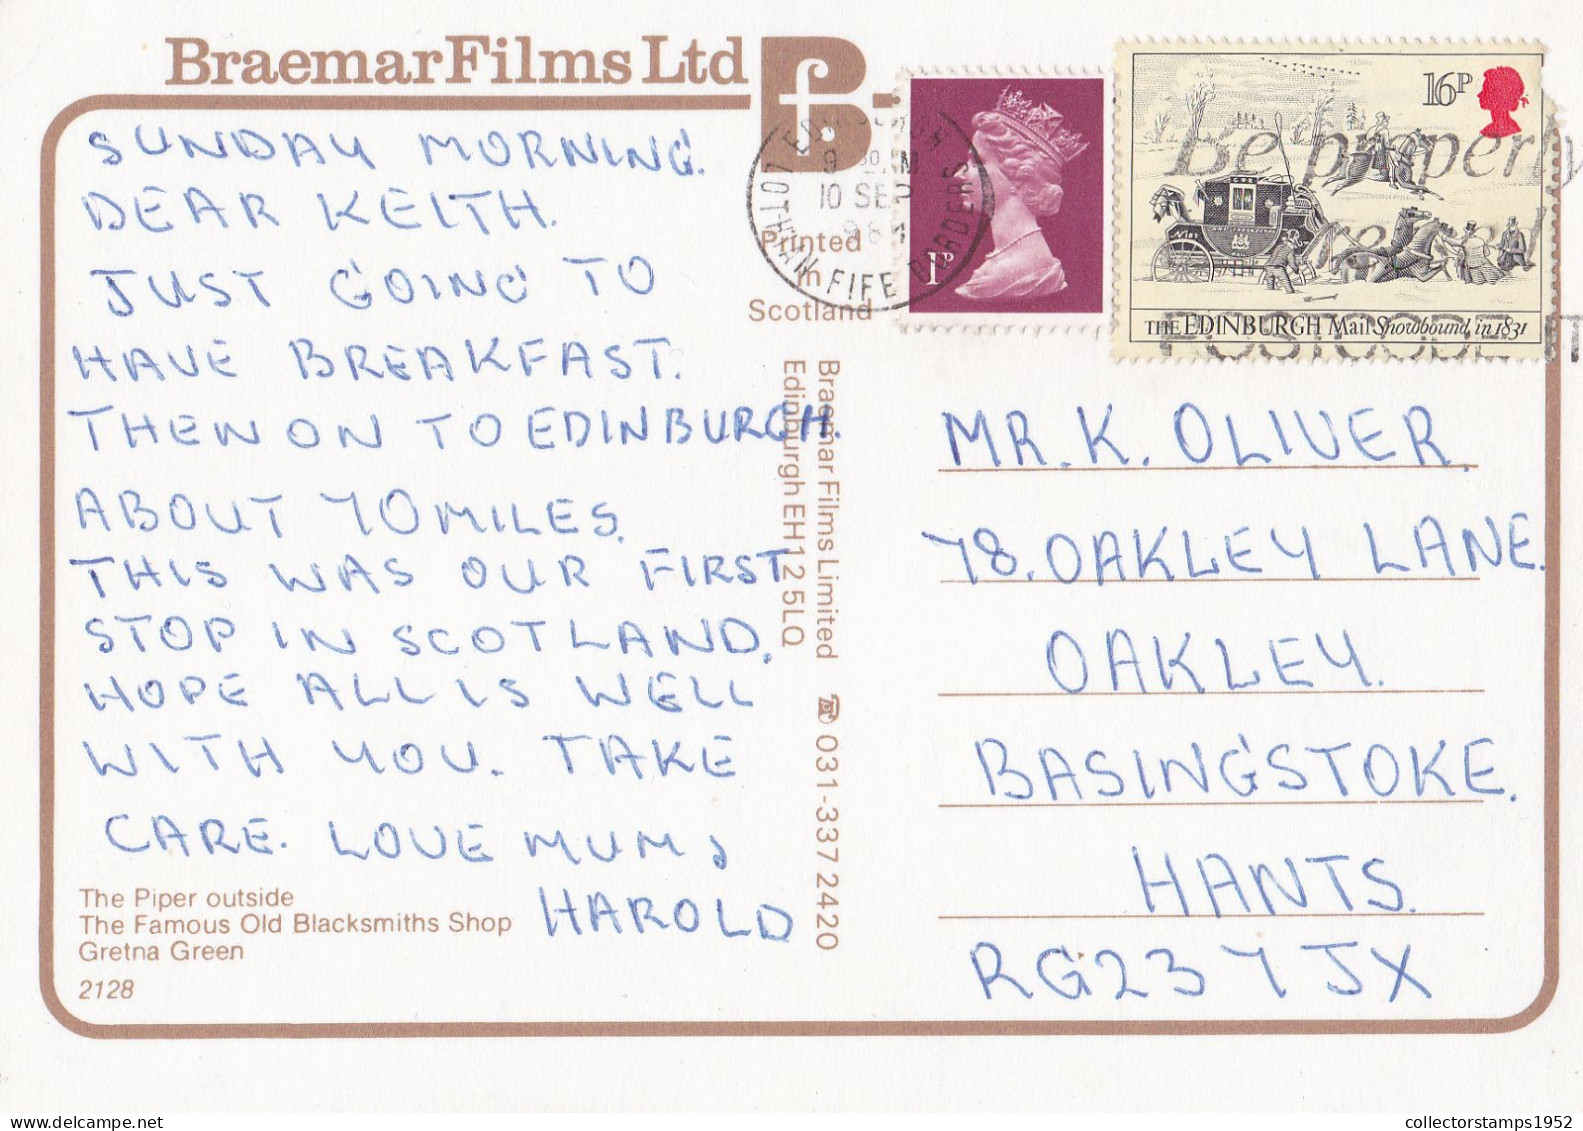 Braemar Films Ltd
SUNDAY MORNING.
DEAR KEITH.
JUST GOING TO
HAVE BREAKFAST.
THEN ON TO EDINBURGH.
ABOUT 70 MILES.
THIS WAS OUR FIRST
STOP IN SCOTLAND.
HOPE ALL IS WELL
WITH YOU. TAKE
CARE. LOVE MUM,
HAROLD
The Piper outside
The Famous Old Blacksmiths Shop
Gretna Green
2128
Printed
in
Scotland
Braemar Films Limited ☎ 031-337 2420
Edinburgh EH12 5LQ
EDINBURGH
10 SEP
LOTHIAN FIFE BORDERS
1P
16P
THE EDINBURGH Mail Snowbound in 1831
Be properly
POSTCODE IT
MR. K. OLIVER.
78. OAKLEY LANE.
OAKLEY.
BASINGSTOKE.
HANTS.
RG23 7JX
collectorstamps1952